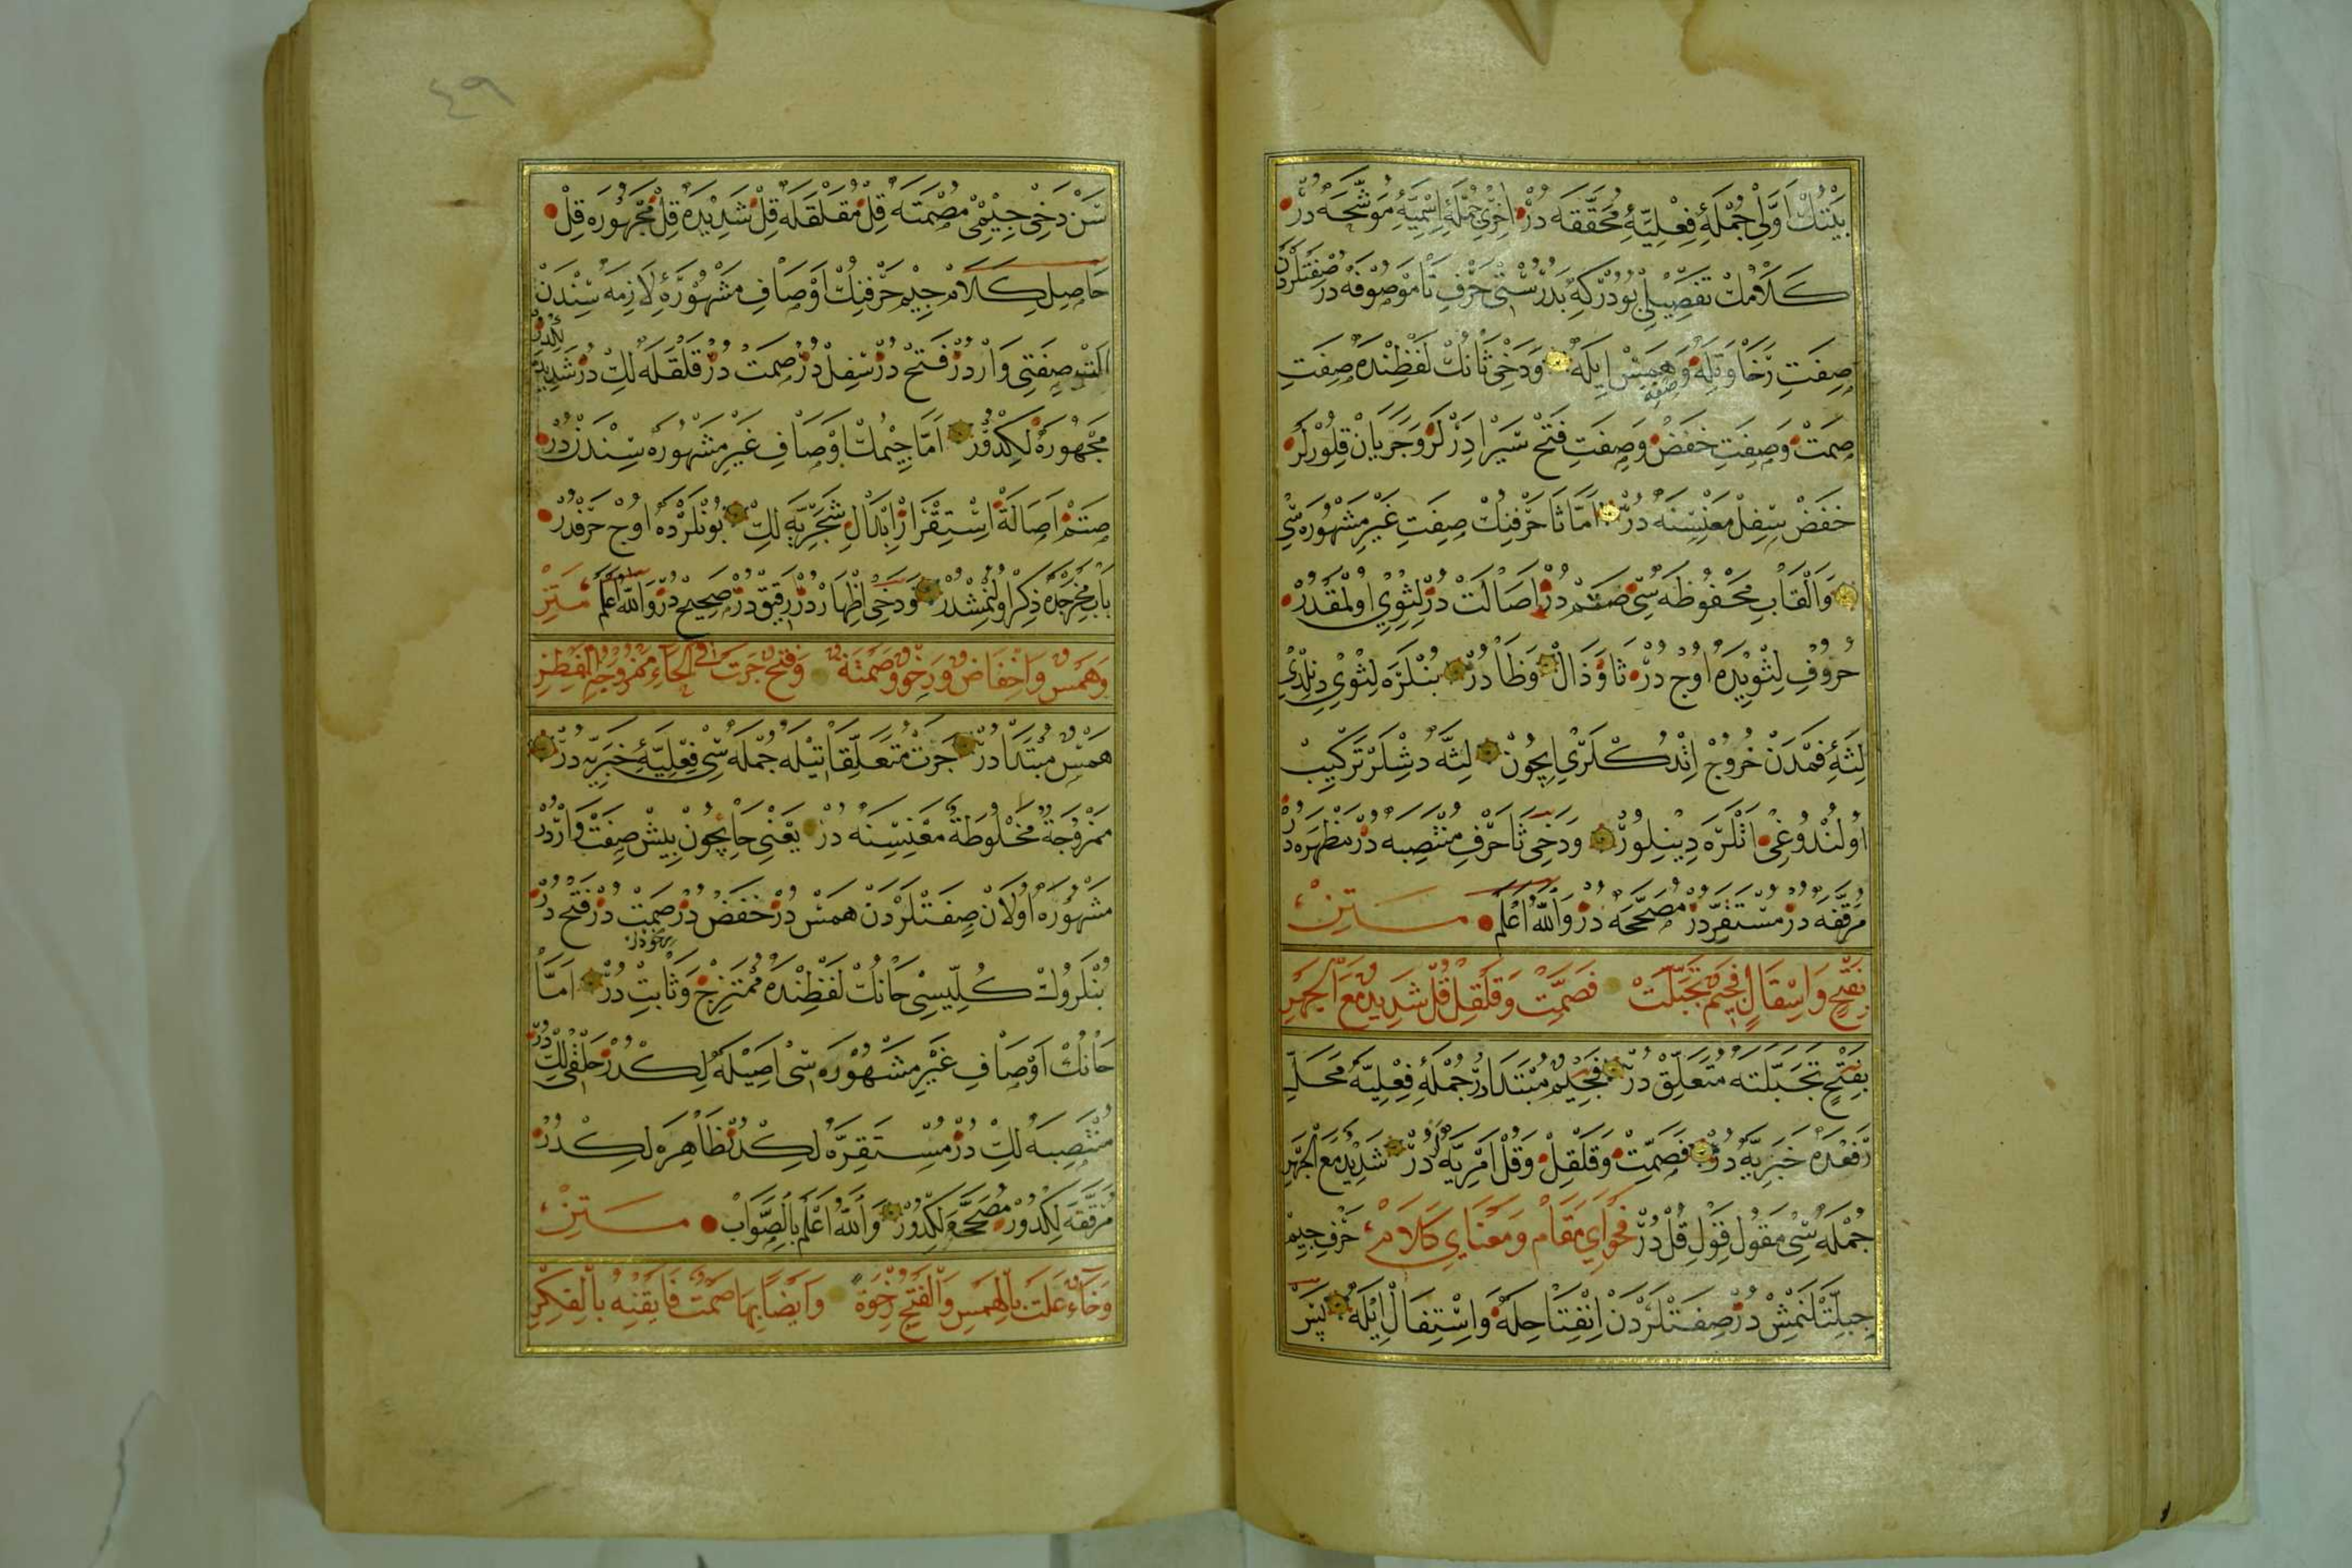 بَيْتُكْ اَوَّلِى جُمْلَهٔ فِعْلِيَّهٔ مُحَقَّقَه دُرْ اُخْرٰى جُمْلَهٔ اِسْمِيَّهٔ مُوَشَّحَه دُرْ
كَلَامُكْ تَفْصِيلِى بُودُرْكِه بَدُرُسْتِى حَرْفِ ثَا مَوْصُوفَه دُرْ صِفَتْلَرْدَنْ
صِفَتِ رَخَاوَتِلَه وَهَمِسْ اِيلَه وَدَخِى ثَانُكْ لَفْظِنْدَه صِفَتِ
صَمَتْ وَصِفَتِ خَفَضْ وَصِفَتِ فَتَحْ سَيْرْ اِدَرْلَرْ وَجَرَيَانْ قِلُورْلَرْ
خَفَضْ سِفِلْ مَعْنِسِنَه دُرْ اَمَّا ثَا حَرْفِنِكْ صِفَتِ غَيْرِ مَشْهُورَه سِى
وَاَلْقَابِ مَحْفُوظَه سِى صَتَمْ دُرْ اَصَالَتْ دُرْ لِثَوِى اُولْمَقْدُرْ
حُرُوفِ لِثَوِيدَه اُوچْ دُرْ ثَا وَذَالْ وَظَا دُرْ بُنْلَرَه لِثَوِى دِنِلْدِى
لِثَهٔ فَمْدَنْ خُرُوجْ اِتْدُكْلَرِى اِيچُونْ لِثَه دِشْلَرْ تَرْكِيبْ
اُولُنْدُوغِى اَتْلَرَه دِينِلُورْ وَدَخِى ثَا حَرْفِ مُنْتَصِبَه دُرْ مُظْهَرَه دُرْ
مُرَقَّقَه دُرْ مُسْتَقِرْدُرْ مُصَحَّحَه دُرْ وَاللّٰهُ اَعْلَمْ مَتِنْ
بِفَتْحٍ وَاِسْفَالٍ فَجِيمٌ تَجَبَّلَتْ فَصَمَّتْ وَقَلْقِلْ قُلْ شَدِيدٌ مَعَ الْجَهْرِ
بِفَتْحٍ تَجَبَّلَتَه مُتَعَلِّقْ دُرْ فَجِيمٌ مُبْتَدَا دُرْ جُمْلَهٔ فِعْلِيَّه مَحَلِّ
رَفْعَدَه خَبَرِيَّه دُرْ فَصَمِّتْ وَقَلْقِلْ وَقُلْ اَمْرِيَّه دُرْ شَدِيدٌ مَعَ الْجَهْرِ
جُمْلَه سِى مَقُولِ قَوْلِ قُلْ دُرْ فَحْوَاىِ مَقَامْ وَمَعْنَاىِ كَلَامْ حَرْفِ جِيمْ
جِبِلَّتْلَنْمِشْ دُرْ صِفَتْلَرْدَنْ اِنْفِتَاحِلَه وَاِسْتِفَالْ اِيْلَه پَسْ
سَنْ دَخِى جِيمِى مُصْمَتَه قِلْ مُقَلْقَلَه قِلْ شَدِيدَه قِلْ مَجْهُورَه قِلْ
حَاصِلِ كَلَامْ جِيمِ حَرْفِنِكْ اَوْصَافِ مَشْهُورَهٔ لَازِمَه سِنْدَنْ
اَلْتِى صِفَتِى وَارْدُرْ فَتَحْ دُرْ سِفِلْ دُرْ صَمَتْ دُرْ قَلْقَلَه لِكْ دُرْ شَدِيدَه لِكْدُرْ
مَجْهُورَه لِكْدُرْ اَمَّا جِيمُكْ اَوْصَافِ غَيْرِ مَشْهُورَه سِنْدَنْدُرْ
صَتَمْ اَصَالَةْ اِسْتِقْرَارْ اِبْدَالْ شَجَرِيَّه لِكْ بُونْلَرْدَه اُوچْ حَرْفْدُرْ
بَابِ مَخْرَجْدَه ذِكْرْ اُولُنْمِشْدُرْ وَدَخِى اِظْهَارْدُرْ رَقِيقْدُرْ صَحِيحْ دُرْ وَاللّٰهُ اَعْلَمْ مَتِنْ
وَهَمْسٌ وَاخْفَاضٌ وَرِخْوٌ وَصَمْتَةٌ وَفَتْحٌ جَرَتْ فِى الْحَاءِ مَمْزُوجَةَ الْفِطْرِ
هَمْسٌ مُبْتَدَا دُرْ جَرَتْ مُتَعَلِّقَاتِيلَه جُمْلَه سِى فِعْلِيَّهٔ خَبَرِيَّه دُرْ
مَمْزُوجَةٌ مَخْلُوطَةٌ مَعْنِسِنَه دُرْ يَعْنِى حَا اِيچُونْ بِيشْ صِفَتْ وَارْدُرْ
مَشْهُورَه اُولَانْ صِفَتْلَرْدَنْ هَمَسْ دُرْ خَفَضْ دُرْ صَمِتْ دُرْ فَتْحْ دُرْ
بُنْلَرُوكْ كُلِّيسِى حَانُكْ لَفْظِنْدَه مُمْتَزِجْ وَثَابِتْ دُرْ اَمَّا
حَانُكْ اَوْصَافِ غَيْرِ مَشْهُورَه سِى اَصِيلَه لِكْدُرْ حَلْقِى لِكْ دُرْ
مُنْتَصِبَه لِكْ دُرْ مُسْتَقِرَّه لِكْدُرْ ظَاهِرَه لِكْدُرْ
مُرَقَّقَه لِكْدُورْ مُصَحَّحَه لِكْدُورْ وَاللّٰهُ اَعْلَمُ بِالصَّوَابْ مَتِنْ
وَخَاءٌ عَلَتْ بِالْهَمْسِ وَالْفَتْحِ رِخْوَةً وَاَيْضًا بِهَا صَمْتٌ فَاَيْقِنْهُ بِالْفِكْرِ